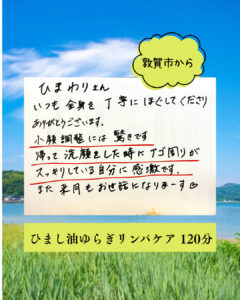 敦賀市から
ひまわりさん
いつも全身を丁寧にほぐしてくださり
ありがとうございます。
小顔調整には驚きです
帰って洗顔をした時にアゴ周りが
スッキリしている自分に感激です。
また来月もお世話になりまーす♡
ひまし油ゆらぎリンパケア 120分